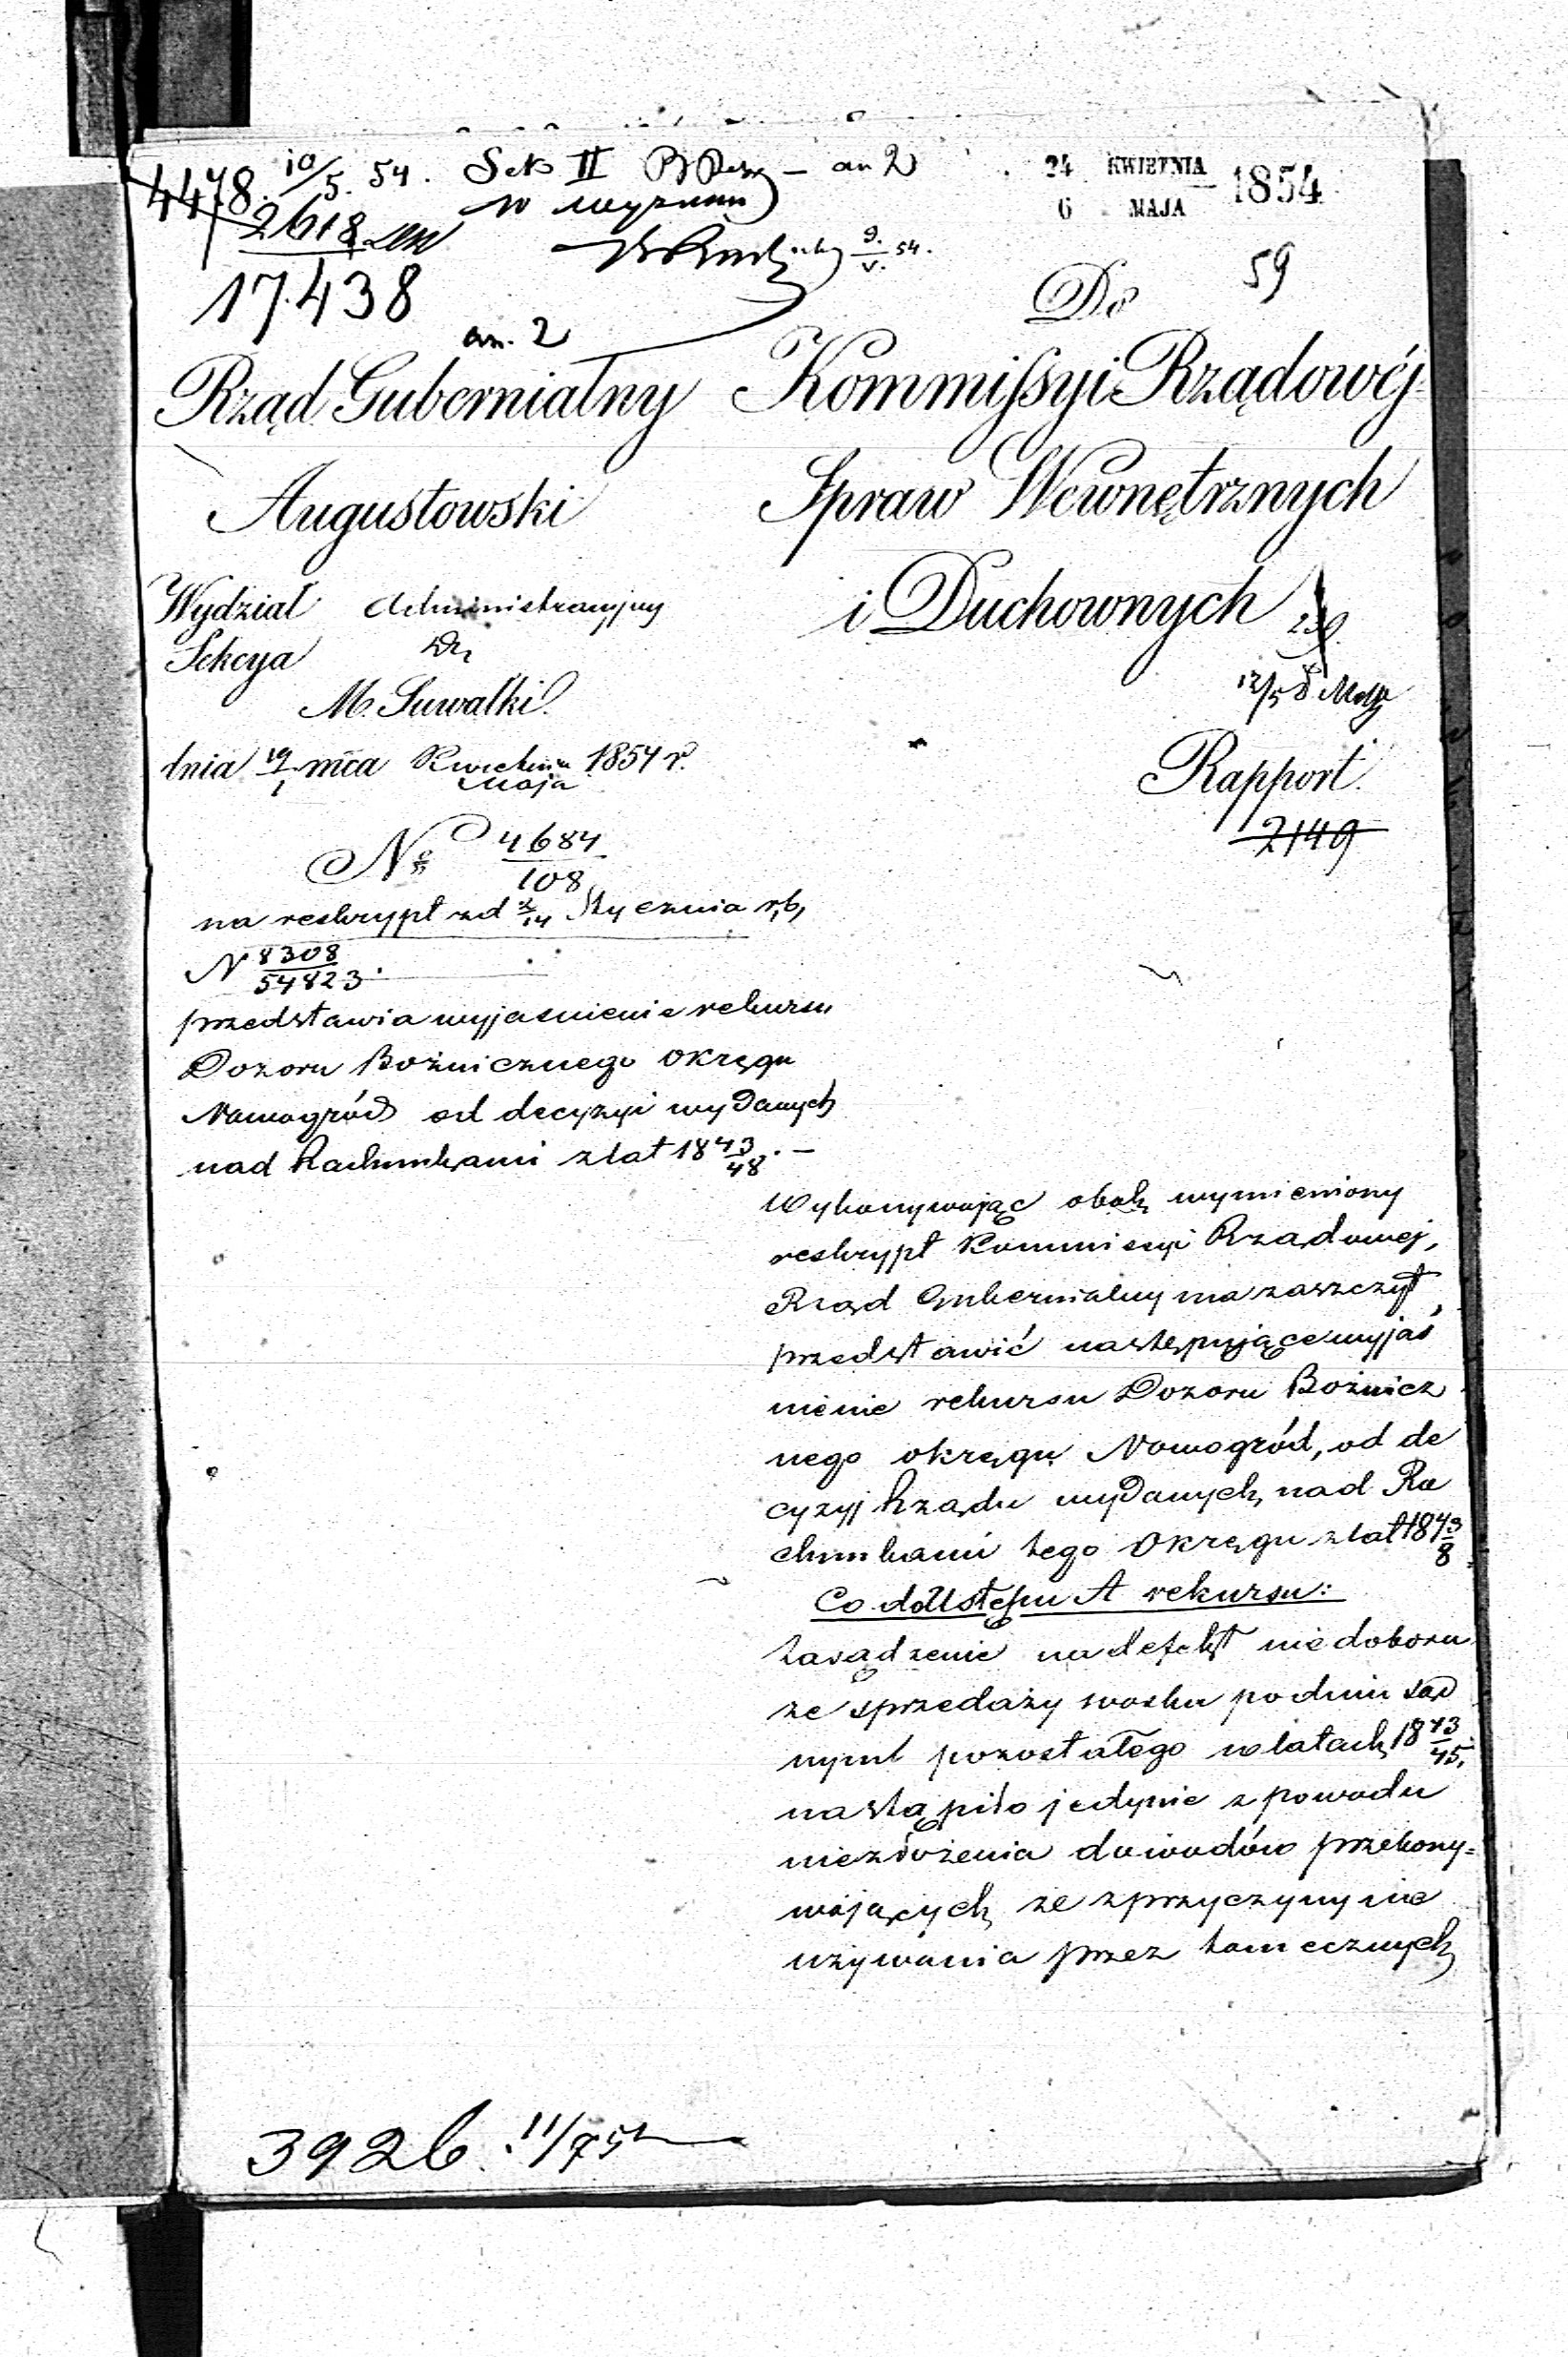 4478. 10/5. 54. Sek II — an 2
24 KWIETNIA 1854
6 MAJA
2618
9/V. 54.
17.438
an. 2
59
Do
Rząd Gubernialny
Augustowski
Kommissyi Rządowéj
Spraw Wewnętrznych
i Duchownych
Wydział Administracyjny
Sekcya
M. Suwałki.
dnia 19/1 mca Kwietnia/Maja 1854 r.
12/5
Rapport.
2149
No 4684/108
na reskrypt z d 2/14 Stycznia r, b,
N 8308/54823.
przedstawia wyjasnienie rekursu
Dozoru Bożnicznego Okręgu
Nowogród od decyzyi wydanych
nad Rachunkami z lat 1843/48. —
Wykonywając obok wymieniony
reskrypt Kommissyi Rządowej,
Rząd Gubernialny ma zaszczyt
przedstawić następujące wyjaś
nienie rekursu Dozoru Bożnicz
nego okręgu Nowogród, od de
cyzyj Rządu wydanych nad Ra
chunkami tego Okręgu z lat 1843/8.
Co do Ustępu A rekursu:
Zasądzenie na defekt niedoboru
ze sprzedaży wosku po dniu sąd
nym pozostałego w latach 1843/45,
nastąpiło jedynie z powodu
niezłożenia dowodów przekony=
wających że z przyczyny nie
używania przez tamecznych
3926. 11/7 54